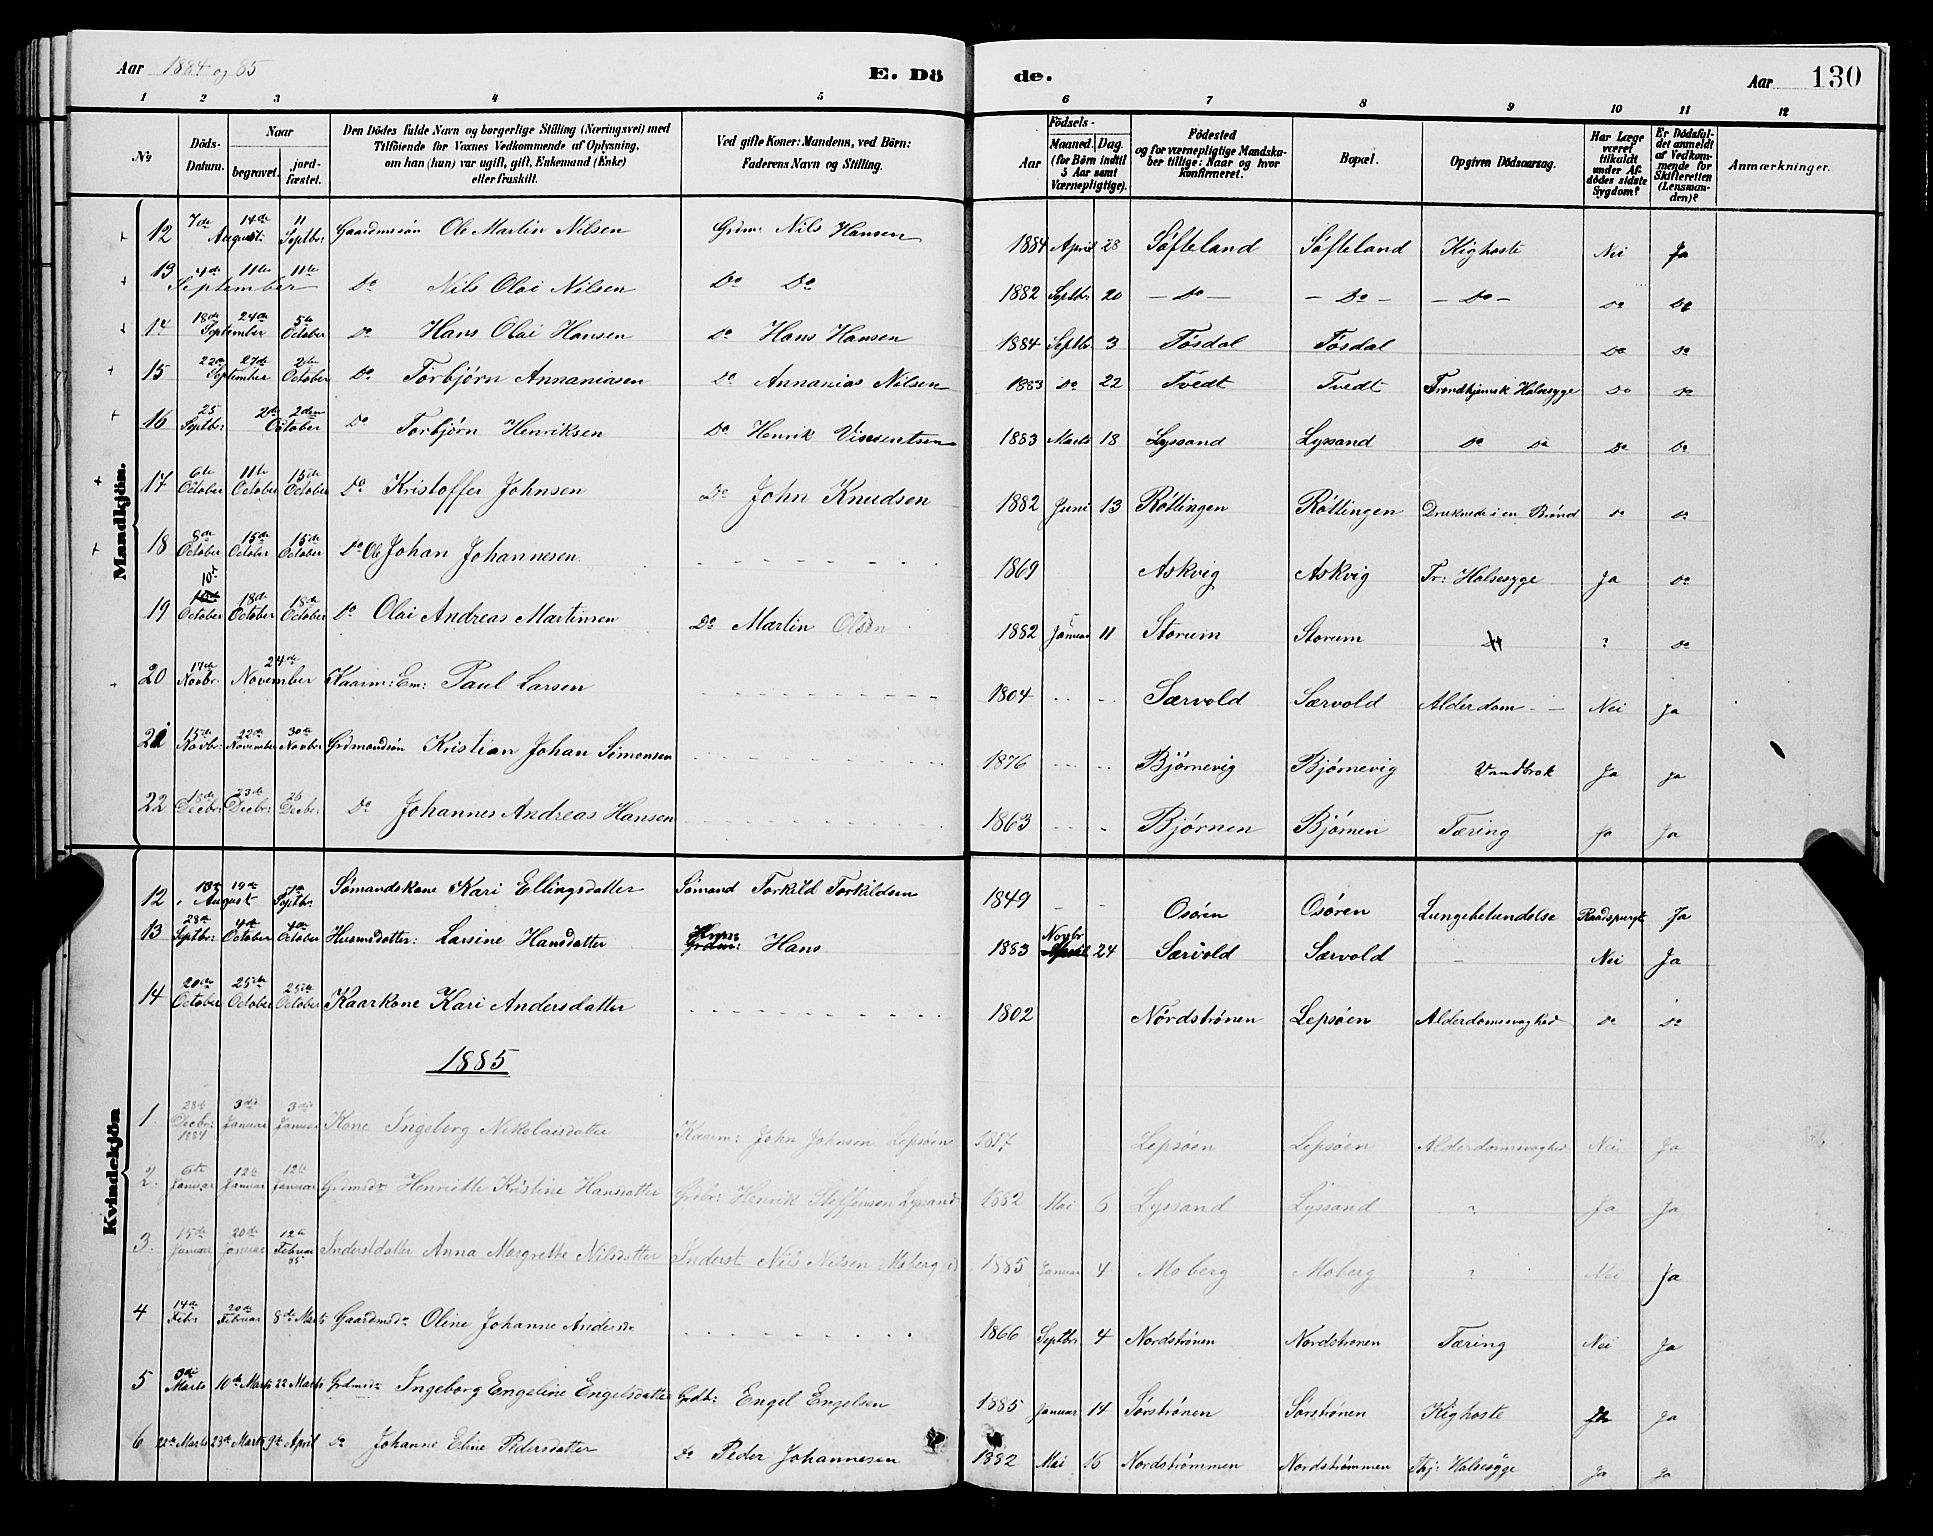 Aar 1884 og 85 E. Dö de. Aar 130
1 2 3 4 5 6 7 8 9 10 11 12
No Döds-Datum. Naar begravet. jordfæstet. Den Dödes fulde Navn og borgerlige Stilling (Næringsvei) med Tilföiende for Voxnes Vedkommende af Oplysning, om han (hun) var ugift, gift, Enkemand (Enke) eller fraskilt. Ved gifte Koner: Mandens, ved Börn: Faderens Navn og Stilling. Födsels- Aar Maaned. Dag. (for Börn indtil 5 Aar samt Værnepligtige). Födested og for værnepligtige Mandskaber tillige: Naar og hvor konfirmeret. Bopæl. Opgiven Dödsaarsag. Har Læge været tilkaldt under Afdödes sidste Sygdom? Er Dödsfaldet anmeldt af Vedkommende for Skifteretten (Lensmanden)? Anmærkninger.
Mandkjön.
12 7de August 14de 11 Septbr. Gaardmssön Ole Martin Nilsen Grdm: Nils Hansen 1884 April 28 Söfteland Söfteland Kighoste Nei Ja
13 4de September 11te 11te Do Nils Olai Nilsen Do Do 1882 Septbr. 20 - Do - - Do - - Do - Do Do
14 18de September 24de 5te October Do Hans Olai Hansen Do Hans Hansen 1884 Septbr 3 Tösdal Tösdal Do Do
15 22de September 27de 2den October Do Torbjørn Annaniasen Do Annanias Nilsen 1883 Do 22 Tvedt Tvedt Trondhjemsk Halsesyge Do Do
16 25 Septbr: 2de October 2den Do Torbjørn Henriksen Do Henrik Vinsentsen 1883 Marts 18 Lyssand Lyssand Do Do Do Do
17 6te October 11te October 15de October Do Kristoffer Johnsen Do John Knudsen 1882 Juni 13 Röttingen Röttingen Druknede i en Brönd Do Do
18 8de October 15de October 15de October Do Ole Johan Johannesen 1869 Askvig Askvig Tr: Halsesyge Ja Do
19 10de October 18de October 18de October Do Olai Andreas Martinsen Do Martin Olsen 1882 Januar 11 Storum Storum ? Do
20 17de Novbr. 24de November Kaarm: Em: Paul Larsen 1804 Særvold Særvold Alderdom Nei Ja
21 15de Novbr. 22de November 30te Novbr Grdmandssön Kristian Johan Simonsen 1876 Bjørnevig Bjørnevig Vandbrok Ja Ja
22 18de Decbr: 23de Decbr: 26 Decbr: Do Johannes Andreas Hansen 1863 Bjørnen Bjørnen Tæring Ja Ja
Kvindekjön
12 13de August 19de 7de Septbr: Sømandskone Kari Ellingsdatter Sømand Torkild Torkildsen 1849 Osören Osören Lungebetændelse Raadspurgt Ja
13 28de Septbr: 4de October 4de October Husmsdatter: Larsine Hansdatter Husm Hans 1883 Novbr 24 Særvold Særvold Nei Ja
14 20de October 25de October 25de October Kaarkone Kari Andersdatter 1802 Nordströnen Lepsöen Alderdomssvaghed Do Do
1885
1. 28de Decbr: 1884 3die Januar 3die Januar Kone Ingeborg Nikolaisdatter Kaarm: John Johnsen Lepsöen 1817 Lepsöen Lepsöen Alderdomssvaghed Nei Ja
2. 6te Januar 12te Januar 12te Januar Grdmsdr Henriette Kristine Hansdatter Grdbr: Henrik Steffensen Lyssand 1882 Mai 6 Lyssand Lyssand ? Ja Ja
3. 15de Januar 20de Januar 12te Februar 85 Inderstdatter Anna Margrethe Nilsdatter Inderst Nils Nilsen Moberg 1885 Januar 4 Moberg Moberg ? Nei Ja
4 14de Febr 20de Februar 8de Marts Gaardmsdr Oline Johanne Andersdr 1866 Septbr: 4 Nordströnen Nordströnen Tæring Nei Ja
5 3die Marts 10de Marts 22 Marts Grdmsdr Ingeborg Engeline Engelsdatter Grdb: Engel Engelsen 1885 Januar 14 Sörströnen Sörströnen Kighoste Ja Ja
6 22de Marts 23de Marts 9de April Do Johanne Eline Pedersdatter Do Peder Johannesen 1882 Mai 15 Nordströmmen Nordströmmen Thj: Halsesÿge Ja Ja